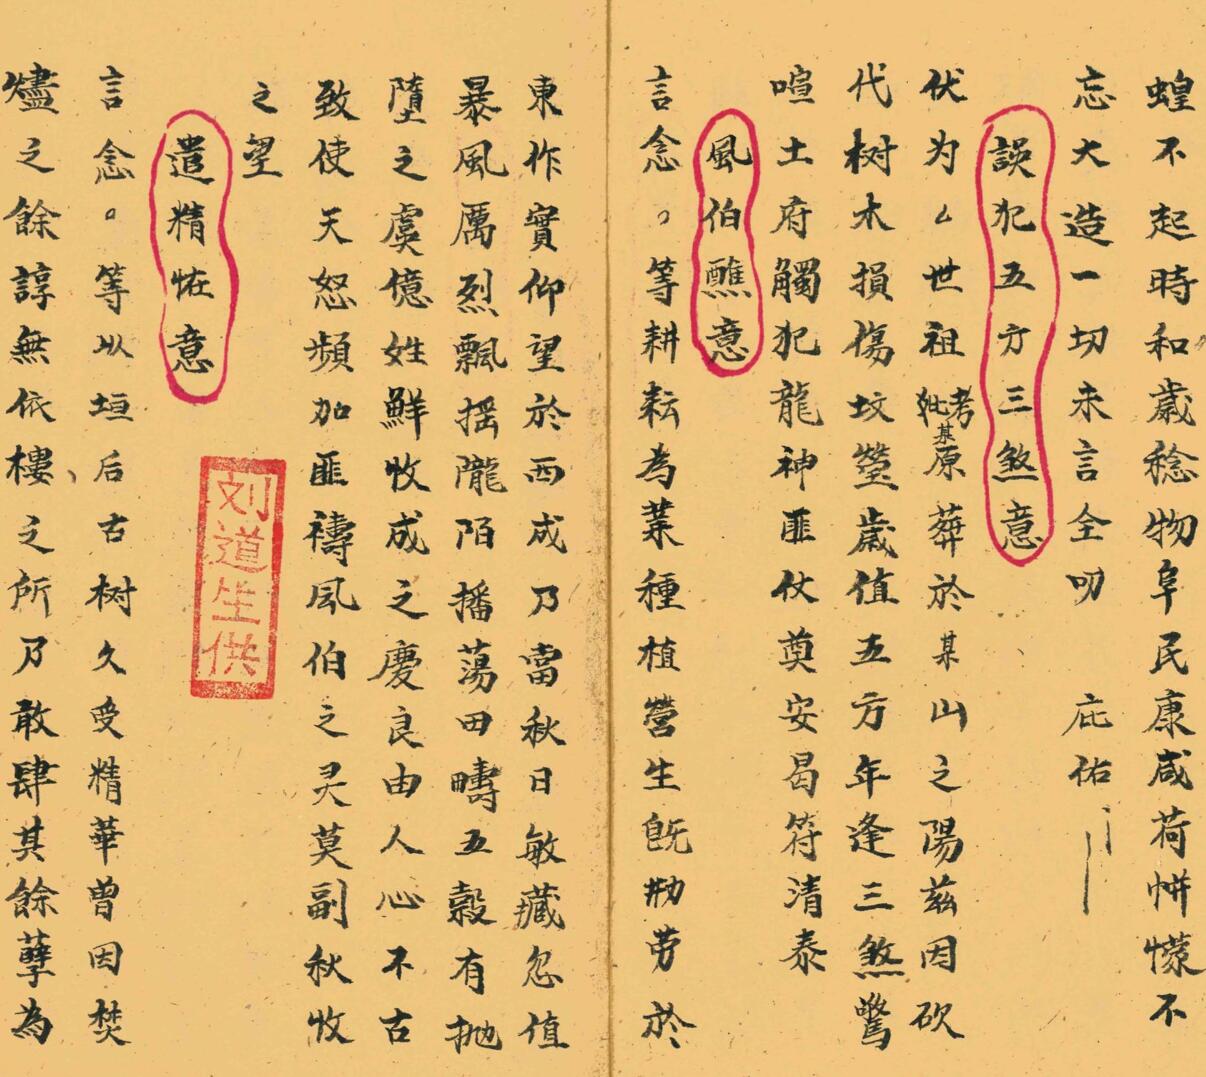 蝗不起時和歲稔物阜民康咸荷帡幪不
忘大造一切未言全叨 庇佑
誤犯五方三煞意
伏为厶世祖考妣某原葬於某山之陽茲因砍
代树木損傷坟塋歲值五方年逢三煞驚
喧土府觸犯龍神匪仗奠安曷符清泰
風伯醮意
言念。等耕耘為業種植營生既劬劳於
東作實仰望於西成乃當秋日敏藏忽值
暴風厲烈飄揺隴陌播蕩田疇五穀有抛
墮之虞億姓鮮收成之慶良由人心不古
致使天怒頻加匪禱風伯之灵莫副秋收
之望
遣精怪意
言念。等从垣后古树久受精華曾因焚
燼之餘諄無依棲之所乃敢肆其餘孽為
刘道生供